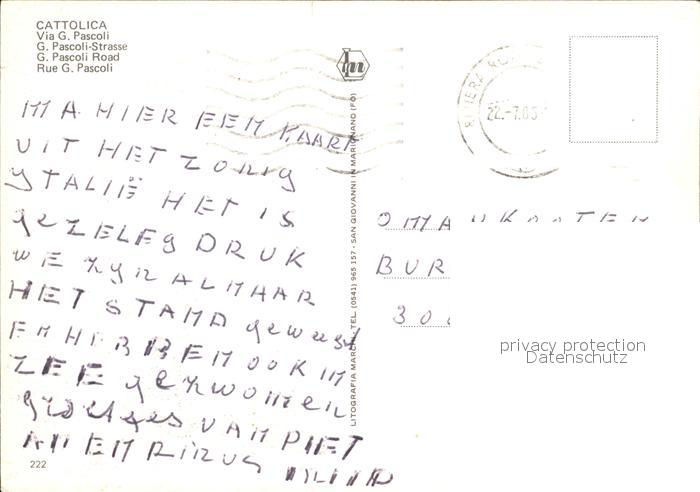 CATTOLICA
Via G. Pascoli
G. Pascoli-Strasse
G. Pascoli Road
Rue G. Pascoli
MA HIER EEN KAART
UIT HET ZONIG
YTALIË HET IS
geZELEG DRUK
WE ZYN ALMAAR
HET STAND geweest
EN HEBBEN OOK IN
ZEE geZwommen
groetjes VAN PIET
222
LITOGRAFIA MARCHI - TEL. (0541) 965 157 - SAN GIOVANNI IN MARIGNANO (FO)
RIVIERA
22.-7.85
OMA
BUR
300
privacy protection
Datenschutz